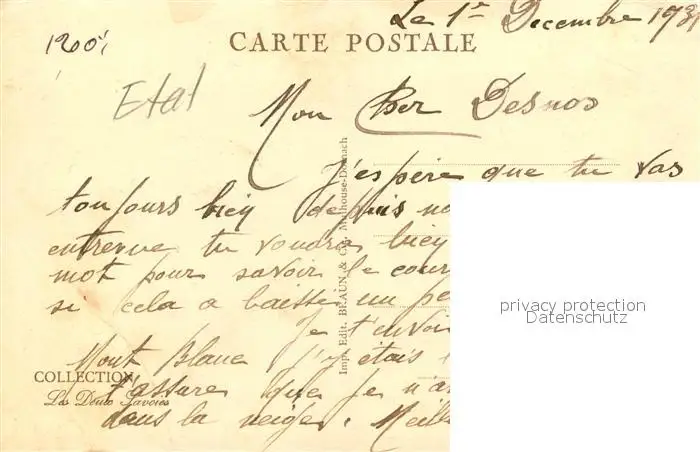 Le 1er Decembre 193
1200
CARTE POSTALE
Etat
Mon Cher Desnos
J'espère que tu vas
toujours bien depuis no
entrevue tu voudra bien
mot pour savoir le cour
si cela a baissé un pe
Je t'envoi
Mont Blanc j'y étais
t'assure que je n'a
dans la neige. Meill
COLLECTION
Les Deux Savoies
Impr. Edit. BRAUN & Cie, Mulhouse-Dornach
privacy protection
Datenschutz